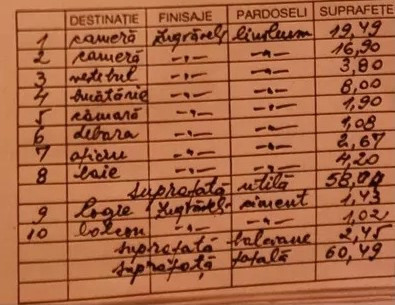 DESTINAȚIE FINISAJE PARDOSELI SUPRAFEȚE
1 cameră zugrăveli linoleum 19,49
2 cameră -"- -"- 16,90
3 vestibul -"- -"- 3,80
4 bucătărie -"- -"- 8,00
5 cămară -"- -"- 1,90
6 debara -"- -"- 1,08
7 oficiu -"- -"- 2,67
8 baie -"- -"- 4,20
suprafată utilă 58,04
9 logie zugrăveli ciment 1,43
10 balcon -"- -"- 1,02
suprafată balcoane 2,45
suprafată totală 60,49